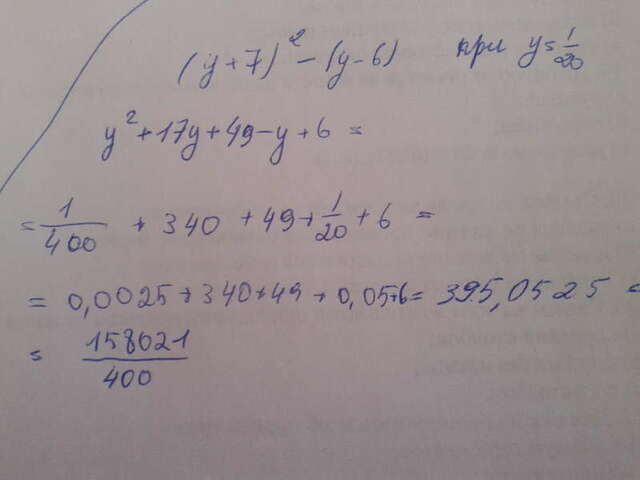 (y+7)² - (y-6) при y=1/20
y²+17y+49-y+6 =
= 1/400 + 340 + 49 + 1/20 + 6 =
= 0,0025+340+49+0,05+6= 395,0525 =
= 158021/400